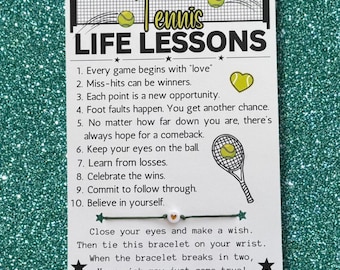 Tennis
LIFE LESSONS
1. Every game begins with "love"
2. Miss-hits can be winners.
3. Each point is a new opportunity.
4. Foot faults happen. You get another chance.
5. No matter how far down you are, there's
always hope for a comeback.
6. Keep your eyes on the ball.
7. Learn from losses.
8. Celebrate the wins.
9. Commit to follow through.
10. Believe in yourself.
Close your eyes and make a wish.
Then tie this bracelet on your wrist.
When the bracelet breaks in two,